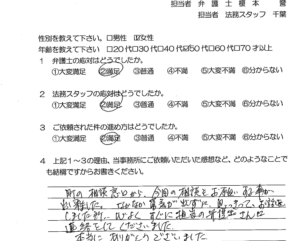 担当者 弁護士榎本 誉
担当者 法務スタッフ 千葉
性別を教えて下さい。□男性 ☑女性
年齢を教えて下さい □20代□30代□40代☑50代□60代□70才以上
1 弁護士の応対はどうでしたか。
①大変満足 ②満足 ③普通 ④不満 ⑤大変不満 ⑥分からない
2 法務スタッフの応対はどうでしたか。
①大変満足 ②満足 ③普通 ④不満 ⑤大変不満 ⑥分からない
3 ご依頼された件の進め方はどうでしたか。
①大変満足 ②満足 ③普通 ④不満 ⑤大変不満 ⑥分からない
4 上記1~3の理由、当事務所にご依頼いただいた感想など、どのようなことで
も結構ですからお書きください。
町の相談窓口から、今回の相談をお願いする事が
出来ました。なかなか勇気が出ずに、思いきって、お電話
しました所、すぐに担当の弁護士さんに
連絡をしてくださいました。
本当にありがとうございました。